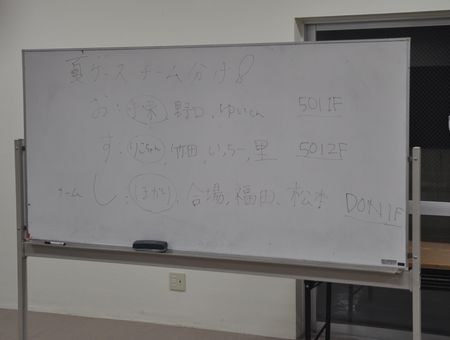 夏ゲース チーム分け!
お: 野口、ゆいさん 5011F
す: りこちゃん 竹田、いっちー、里 5012F
チーム し: まかり、合場、福田、松本 DON1F